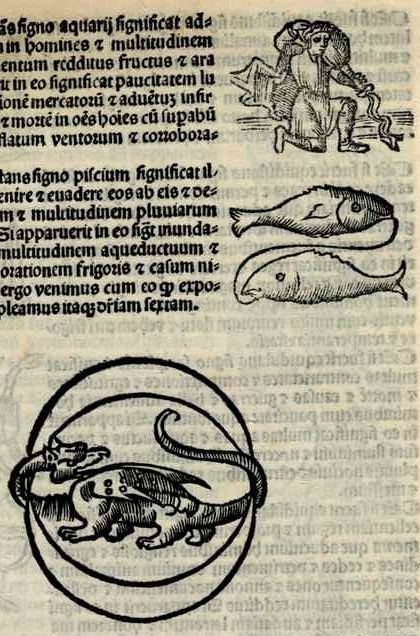 ãs signo aquarij significat ad-
in homines ⁊ multitudinem
entum redditus fructus ⁊ ara
rit in eo significat paucitatem lu
ionē mercatorū ⁊
⁊ mortē in oēs hoies cū
flatum ventorum ⁊ corrobora-
tans signo piscium significat il
enire ⁊ euadere eos ab eis ⁊ de-
m ⁊ multitudinem pluuiarum
Si apparuerit in eo inunda-
multitudinem aqueductuum ⁊
orationem frigoris ⁊ casum ni-
ergo venimus cum eo expo-
pleamus sextam.